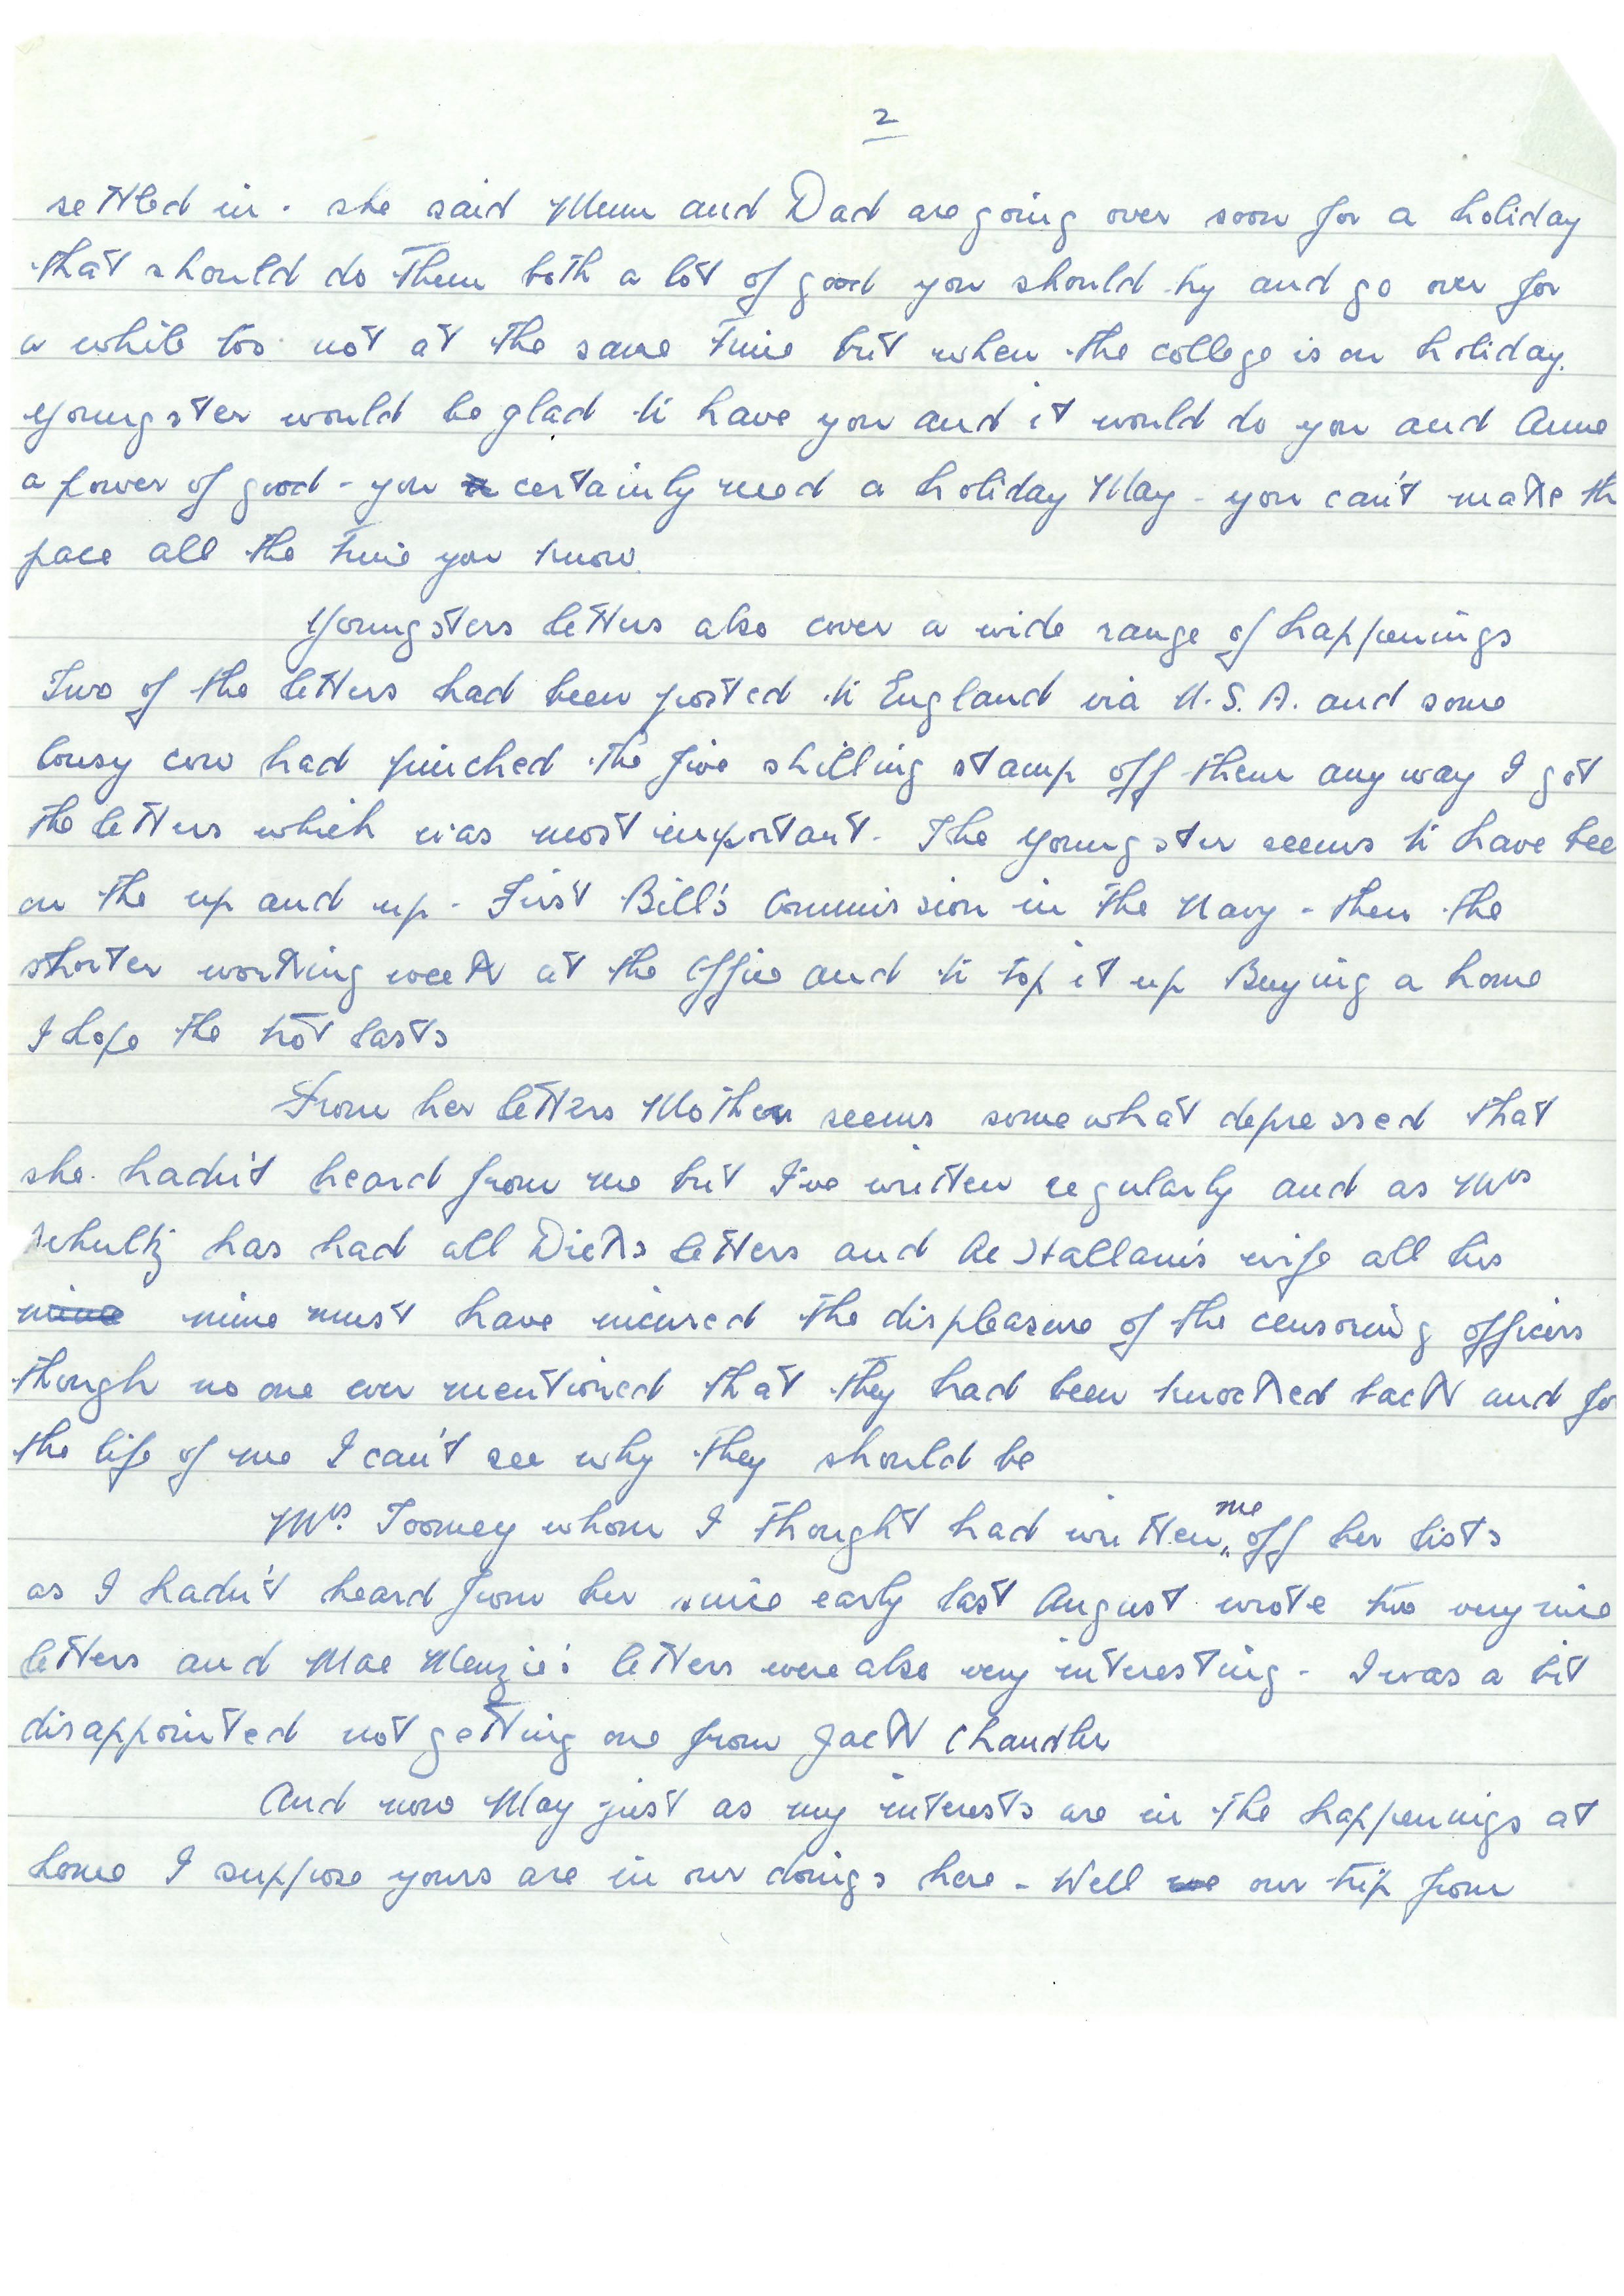 2
settled in. she said Mum and Dad are going over soon for a holiday
that should do them both a lot of good you should try and go over for
a while too not at the same time but when the college is on holiday.
Youngster would be glad to have you and it would do you and Anne
a power of good - you certainly need a holiday May - you can't make th
pace all the time you know.
Youngsters letters also cover a wide range of happenings
Two of the letters had been posted to England via U.S.A. and some
lousy cow had pinched the five shilling stamp off them anyway I got
the letters which was most important. The youngster seems to have bee
on the up and up - First Bill's Commission in the Navy - then the
shorter working week at the office and to top it up Buying a home
I hope the hot lasts
From her letters Mother seems somewhat depressed that
she hadn't heard from me but I've written regularly and as Mrs
Schultz has had all Dicks letters and Ae Hallam's wife all his
mine mine must have incured the displeasure of the censoring officers
though no one ever mentioned that they had been knocked back and fo
the life of me I can't see why they should be
Mrs. Toomey whom I thought had written me off her lists
as I hadn't heard from her since early last August wrote two very nice
letters and Mae Menzie's letters were also very interesting - I was a bit
disappointed not getting one from Jack Chandler
And now May just as my interests are in the happenings at
home I suppose yours are in our doings here - Well we our trip from